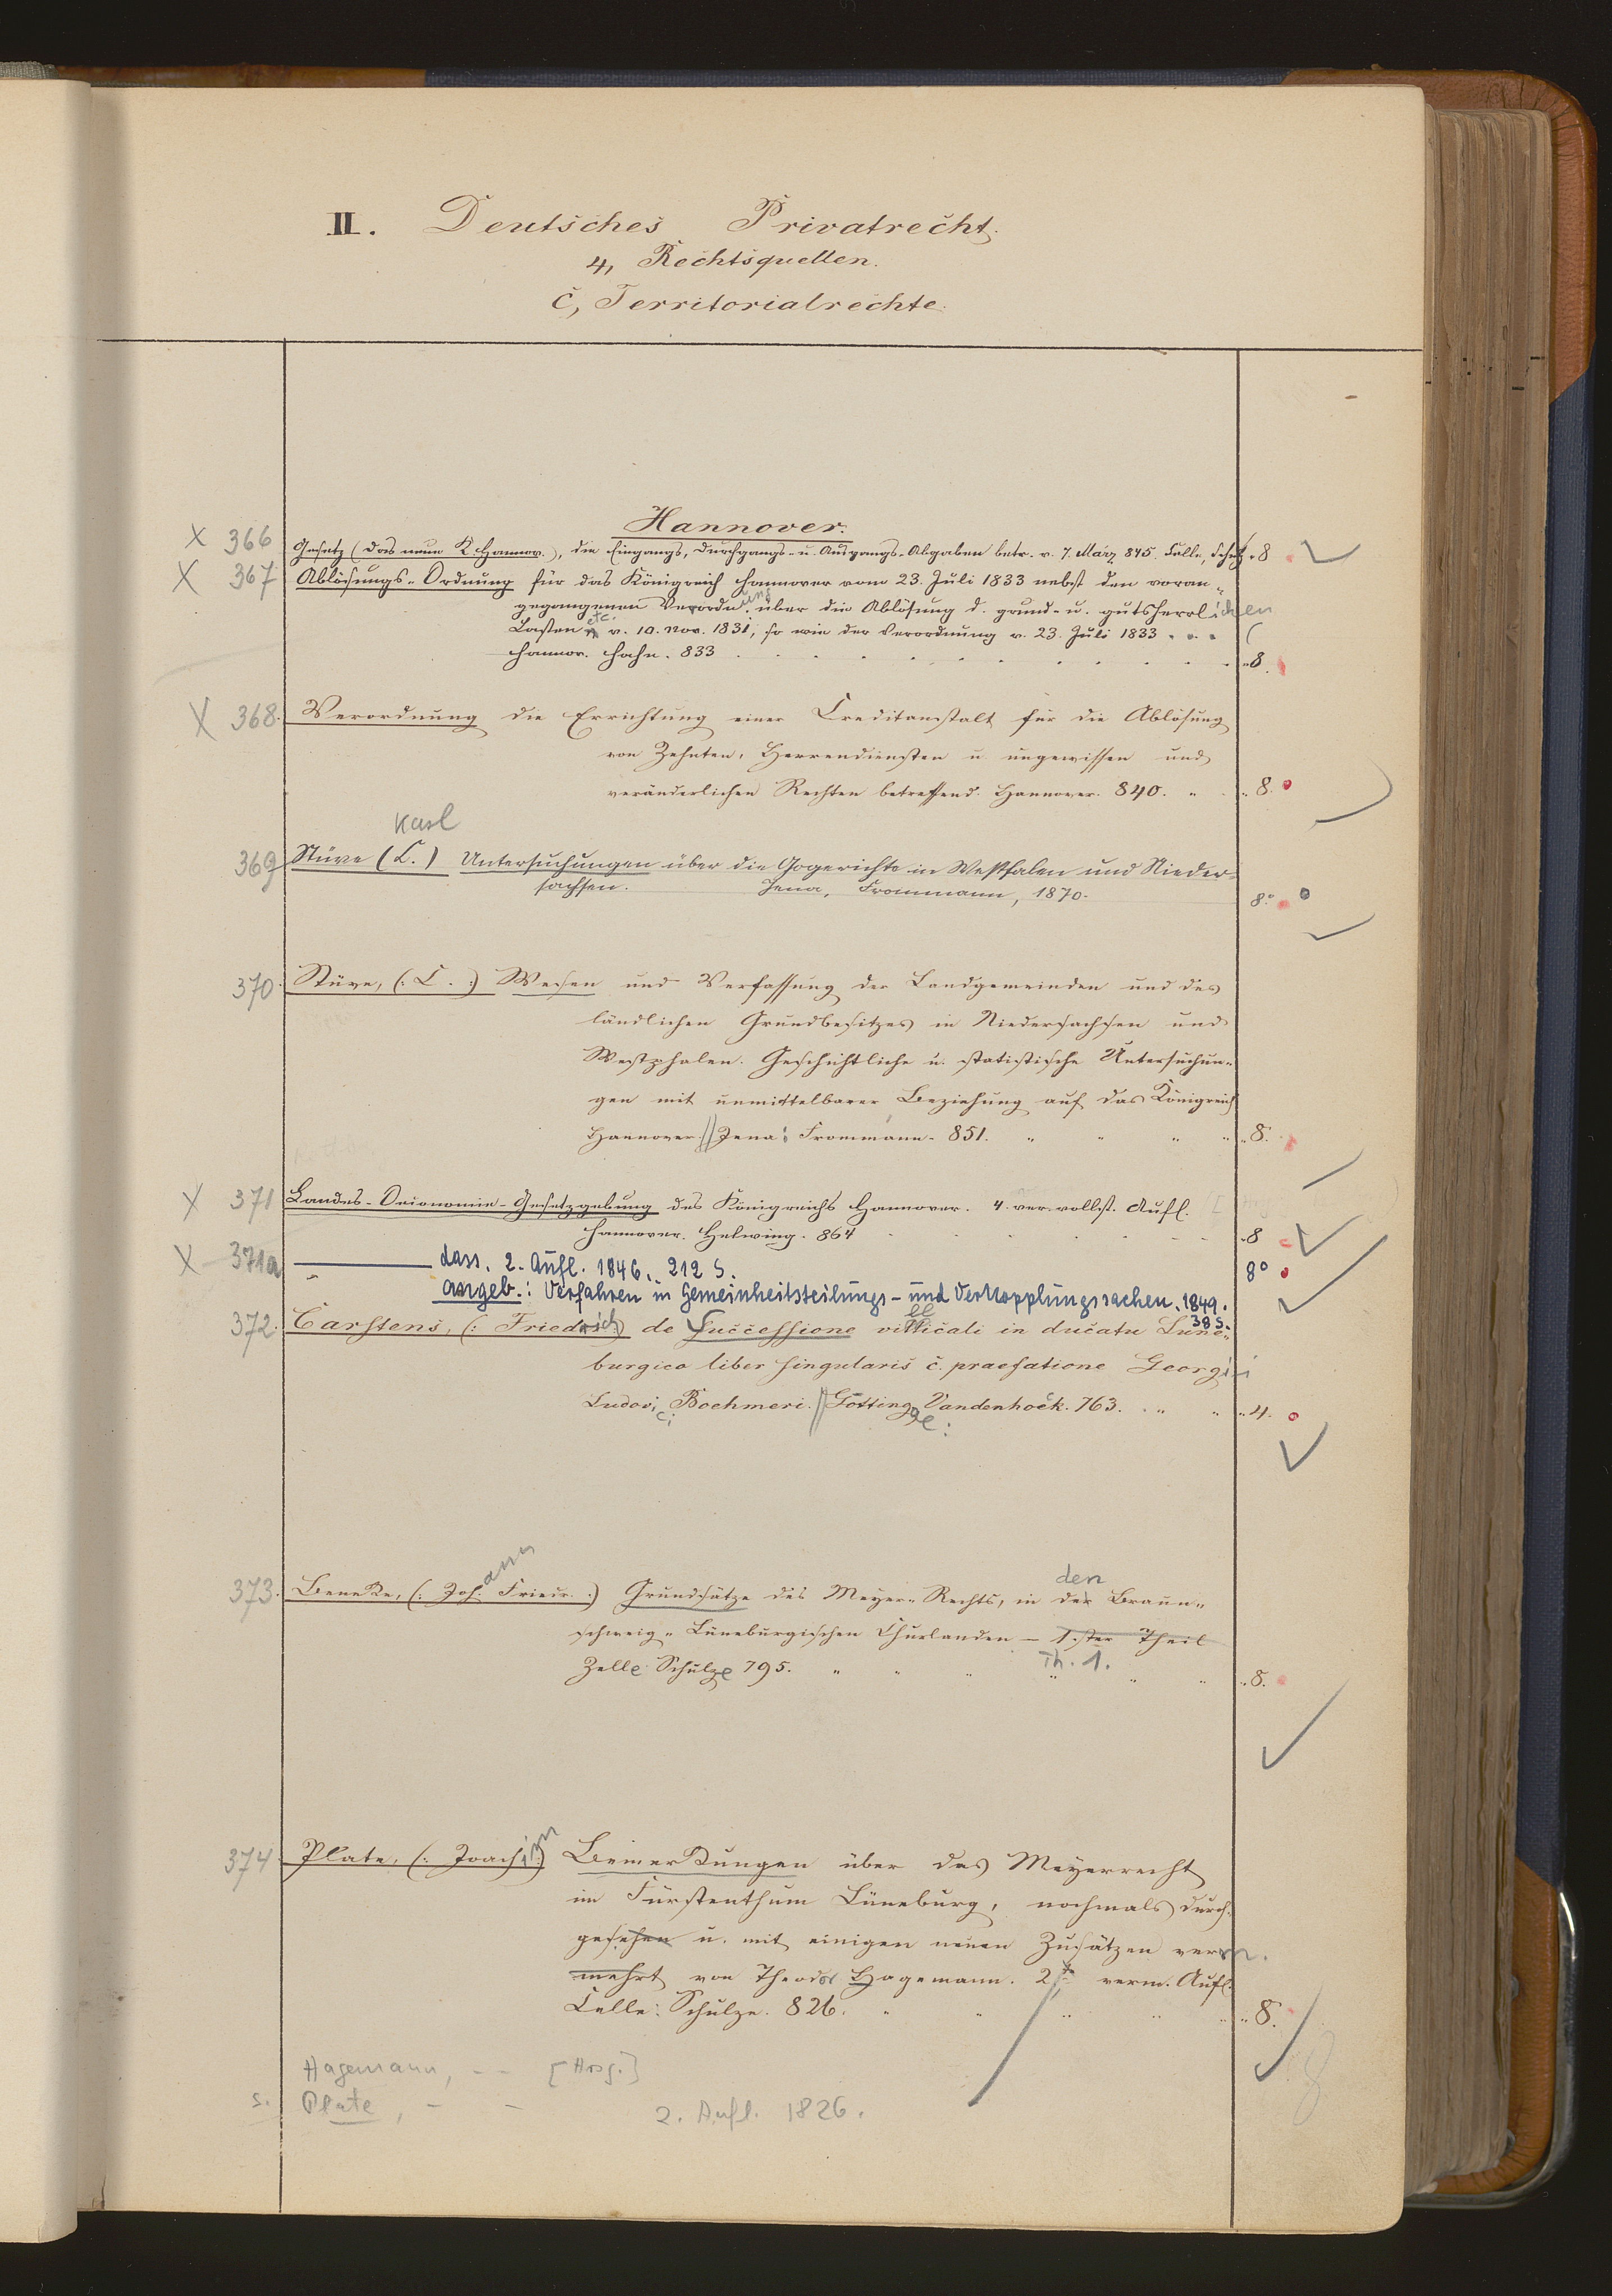 II. Deutsches Privatrecht.
4, Rechtsquellen.
c, Territorialrechte.
Hannover.
X 366 Gesetz (das neue K. Hannov.), die Eingangs, Durchgangs- u. Ausgangs-Abgaben betr. v. 7. März 845. Celle, Schulz „8
X 367 Ablösungs-Ordnung für das Königreich Hannover vom 23. Juli 1833 nebst den voran-
gegangenen Verordnung über die Ablösung d. grund- u. gutsherrlichen
Lasten etc. v. 10. Nov. 1831, so wie der Verordnung v. 23. Juli 1833 . . .
Hannov. Hahn. 833 „8.
X 368. Verordnung die Errichtung einer Creditanstalt für die Ablösung
von Zehnten, Herrendiensten u. ungewissen und
veränderlichen Rechten betreffend. Hannover. 840. „ „8.
Karl
369 Stüve (C.) Untersuchungen über die Gogerichte in Westfalen und Nieder-
sachsen. Jena, Frommann, 1870. 8°
370. Stüve, (: C. :) Wesen und Verfassung der Landgemeinden und des
ländlichen Grundbesitzes in Niedersachsen und
Westphalen. Geschichtliche u. statistische Untersuchun-
gen mit unmittelbarer Beziehung auf das Königreich
Hannover. Jena: Frommann. 851. „ „ „ „ „8.
X 371 Landes-Oeconomie-Gesetzgebung des Königreichs Hannover. 4. ver. vollst. Aufl.
Hannover. Helwing. 864 . 8
X 371a ——— dass. 2. Aufl. 1846. 212 S. 8°
angeb.: Verfahren in Gemeinheitsteilungs- und Verkopplungssachen. 1849.
38 S.
372. Carstens, (: Friedrich) de Successione villicali in ducatu Lune-
burgico liber singularis c. praefatione Georgii
Ludovici Boehmeri. Göttingae: Vandenhoek. 763. „ „ „4.
373. Beneke, (: Joh.ann Friedr. :) Grundsätze des Meyer-Rechts, in den Braun-
schweig-Lüneburgischen Churlanden – 1.ster Theil
Zelle Schulze 795. „ „ „ Th. 1. „ „ „8.
374 Plate, (: Joachim) Bemerkungen über das Meyerrecht
im Fürstenthum Lüneburg, nochmals durch-
gesehen u. mit einigen neuen Zusätzen verm.
mehrt von Theodor Hagemann. 2t verm. Aufl.
Celle: Schulze. 826. „ „ „ „ „ „8.
Hagemann, -- [Hrsg.]
s. Plate, - - 2. Aufl. 1826.